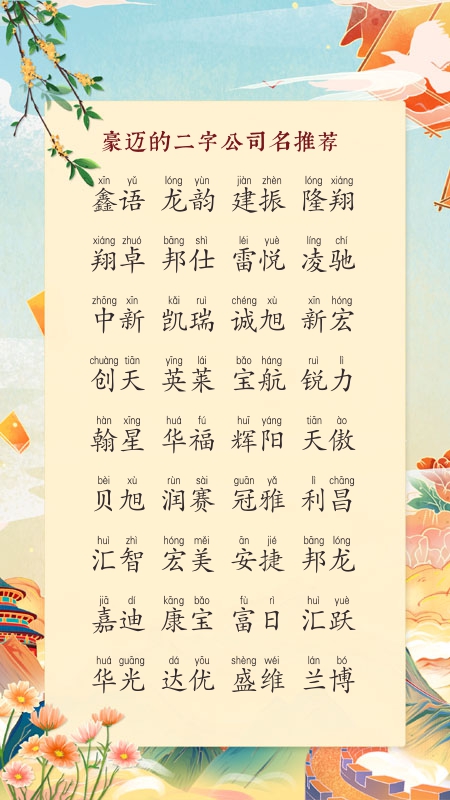 豪迈的二字公司名推荐
xīn yǔ lóng yùn jiàn zhèn lóng xiáng
鑫语 龙韵 建振 隆翔
xiáng zhuó bāng shì léi yuè líng chí
翔卓 邦仕 雷悦 凌驰
zhōng xīn kǎi ruì chéng xù xīn hóng
中新 凯瑞 诚旭 新宏
chuàng tiān yīng lái bǎo háng ruì lì
创天 英莱 宝航 锐力
hàn xīng huá fú huī yáng tiān ào
翰星 华福 辉阳 天傲
bèi xù rùn sài guān yǎ lì chāng
贝旭 润赛 冠雅 利昌
huì zhì hóng měi ān jié bāng lóng
汇智 宏美 安捷 邦龙
jiā dí kāng bǎo fù rì huì yuè
嘉迪 康宝 富日 汇跃
huá guāng dá yōu shèng wéi lán bó
华光 达优 盛维 兰博